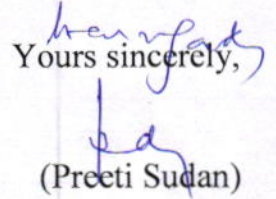 Yours sincerely,
(Preeti Sudan)